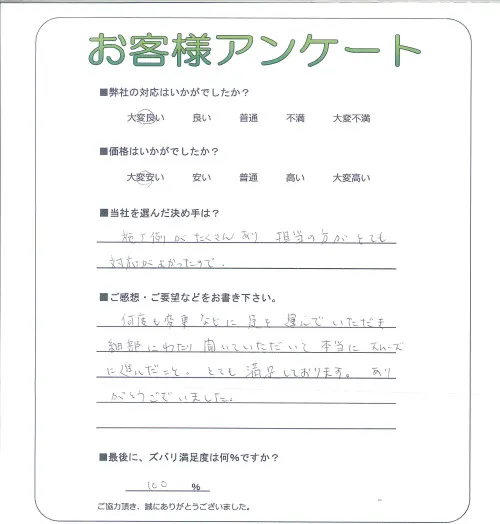 お客様アンケート
■弊社の対応はいかがでしたか？
大変良い 良い 普通 不満 大変不満
■価格はいかがでしたか？
大変安い 安い 普通 高い 大変高い
■当社を選んだ決め手は？
施工例がたくさんあり 担当の方がとても
対応がよかったので．
■ご感想・ご要望などをお書き下さい。
何度も変更などに足を運んでいただき
細部にわたり聞いていただいて本当にスムーズ
に進んだこと。とても満足しております。あり
がとうございました。
■最後に、ズバリ満足度は何%ですか？
100 %
ご協力頂き、誠にありがとうございました。